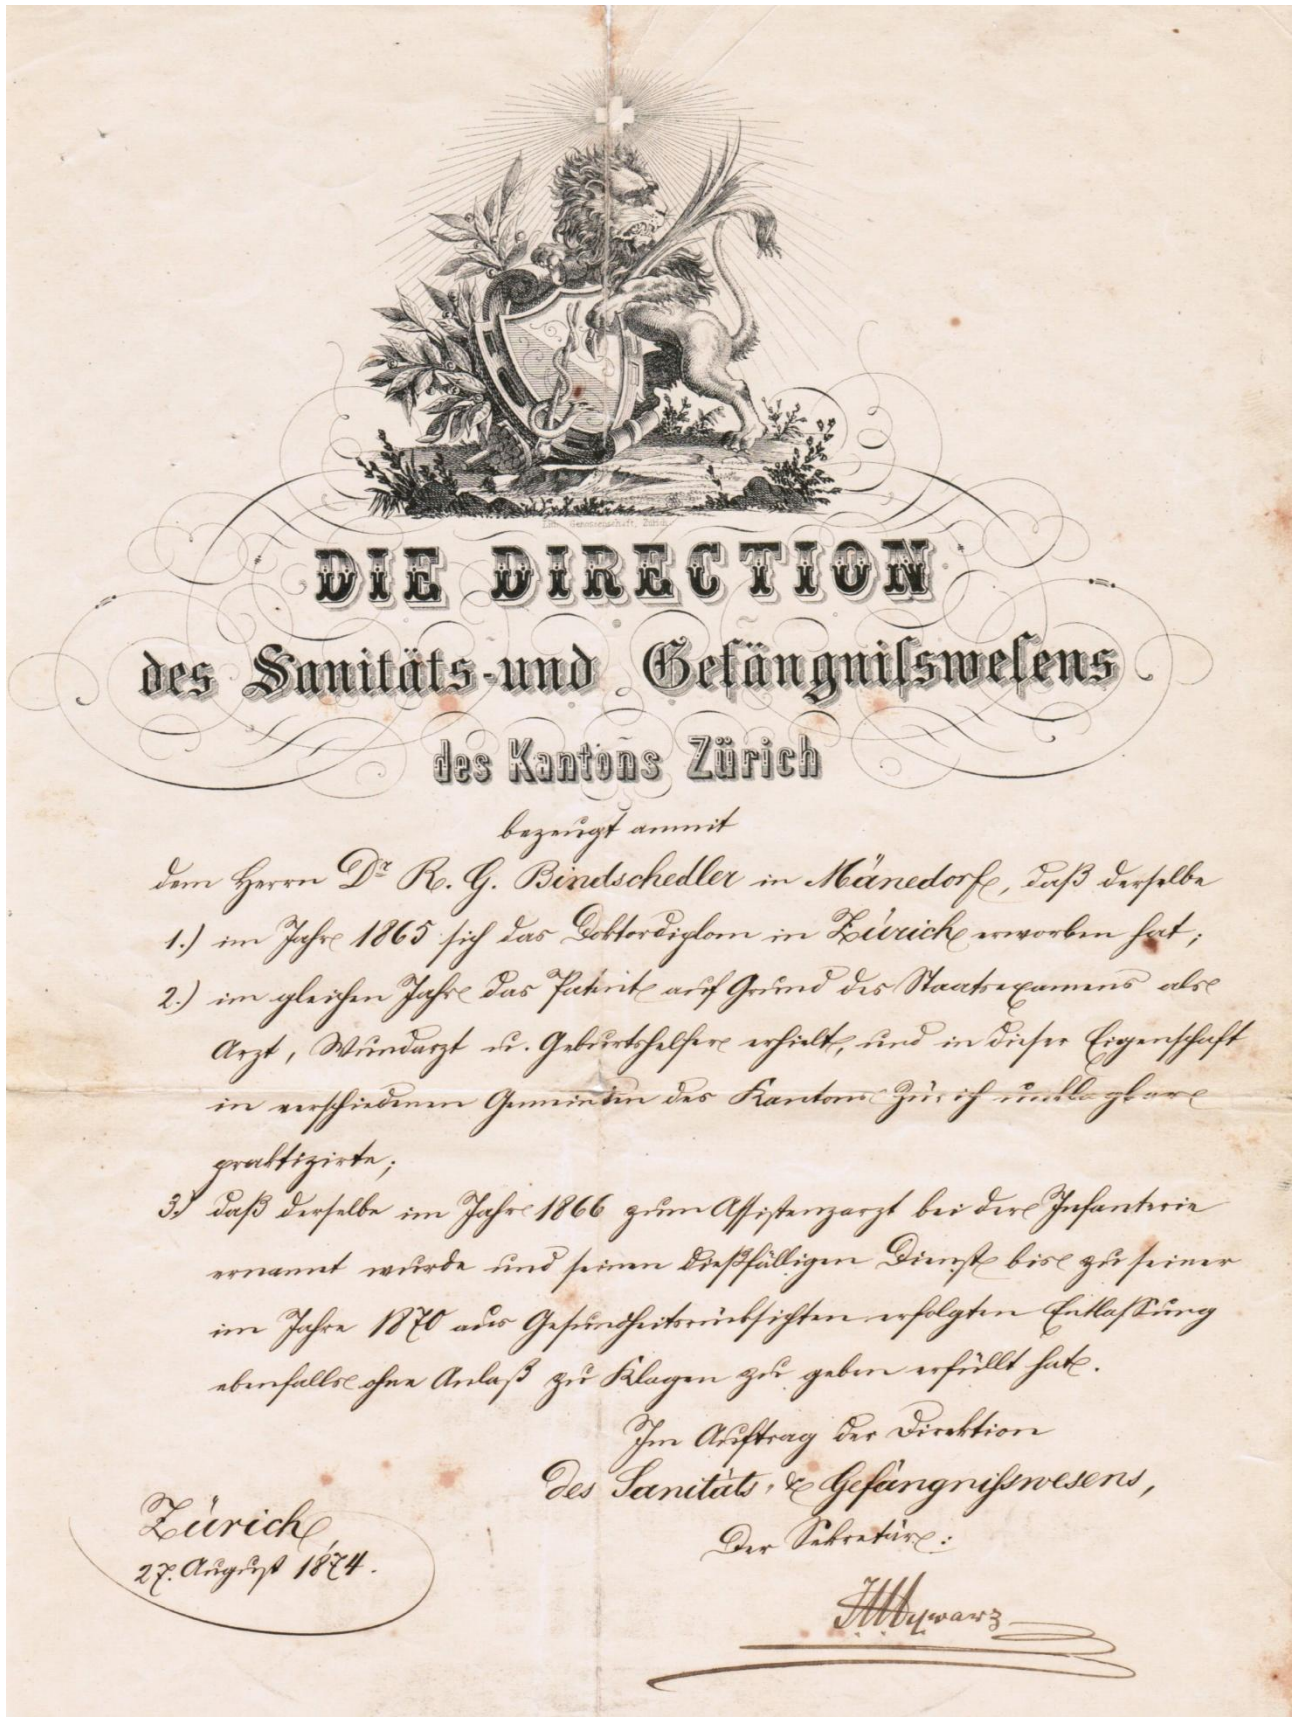 Lith. Genossenschaft, Zürich
DIE DIRECTION
des Sanitäts-und Gefängnisswesens
des Kantons Zürich
bezeugt anmit
dem Herrn Dr R. G. Bindschedler in Mänedorf, daß derselbe
1.) im Jahre 1865 sich das Doktordiplom in Zürich erworben hat;
2.) im gleichen Jahre das Patent auf Grund des Staatsexamens als
Arzt, Wundarzt u. Geburtshelfer erhielt, und in dieser Eigenschaft
in verschiedenen Gemeinden des Kantons Zürich unklagbar
praktizirte;
3.) daß derselbe im Jahre 1866 zum Assistenzarzt bei der Infanterie
ernannt wurde und seinen dießfälligen Dienst bis zu seiner
im Jahre 1870 aus Gesundheitsrücksichten erfolgten Entlassung
ebenfalls ohne Anlaß zu Klagen zu geben erfüllt hat.
Im Auftrag der Direktion
des Sanitäts- & Gefängnißwesens,
Der Sekretär:
Zürich,
27. August 1874.
Schwarz